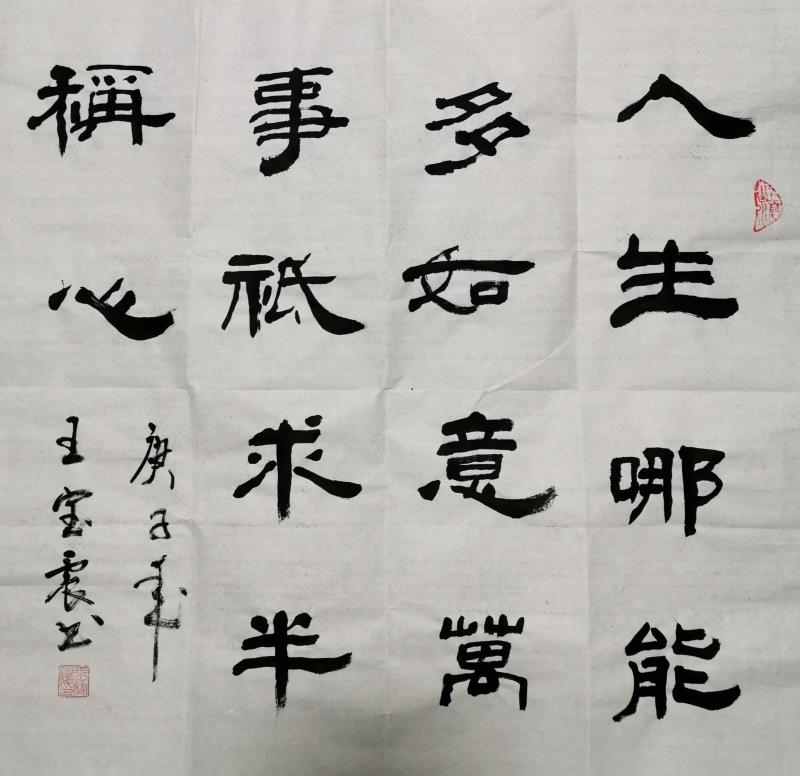 人生哪能
多如意萬
事祇求半
稱心
庚子年
王宝震书